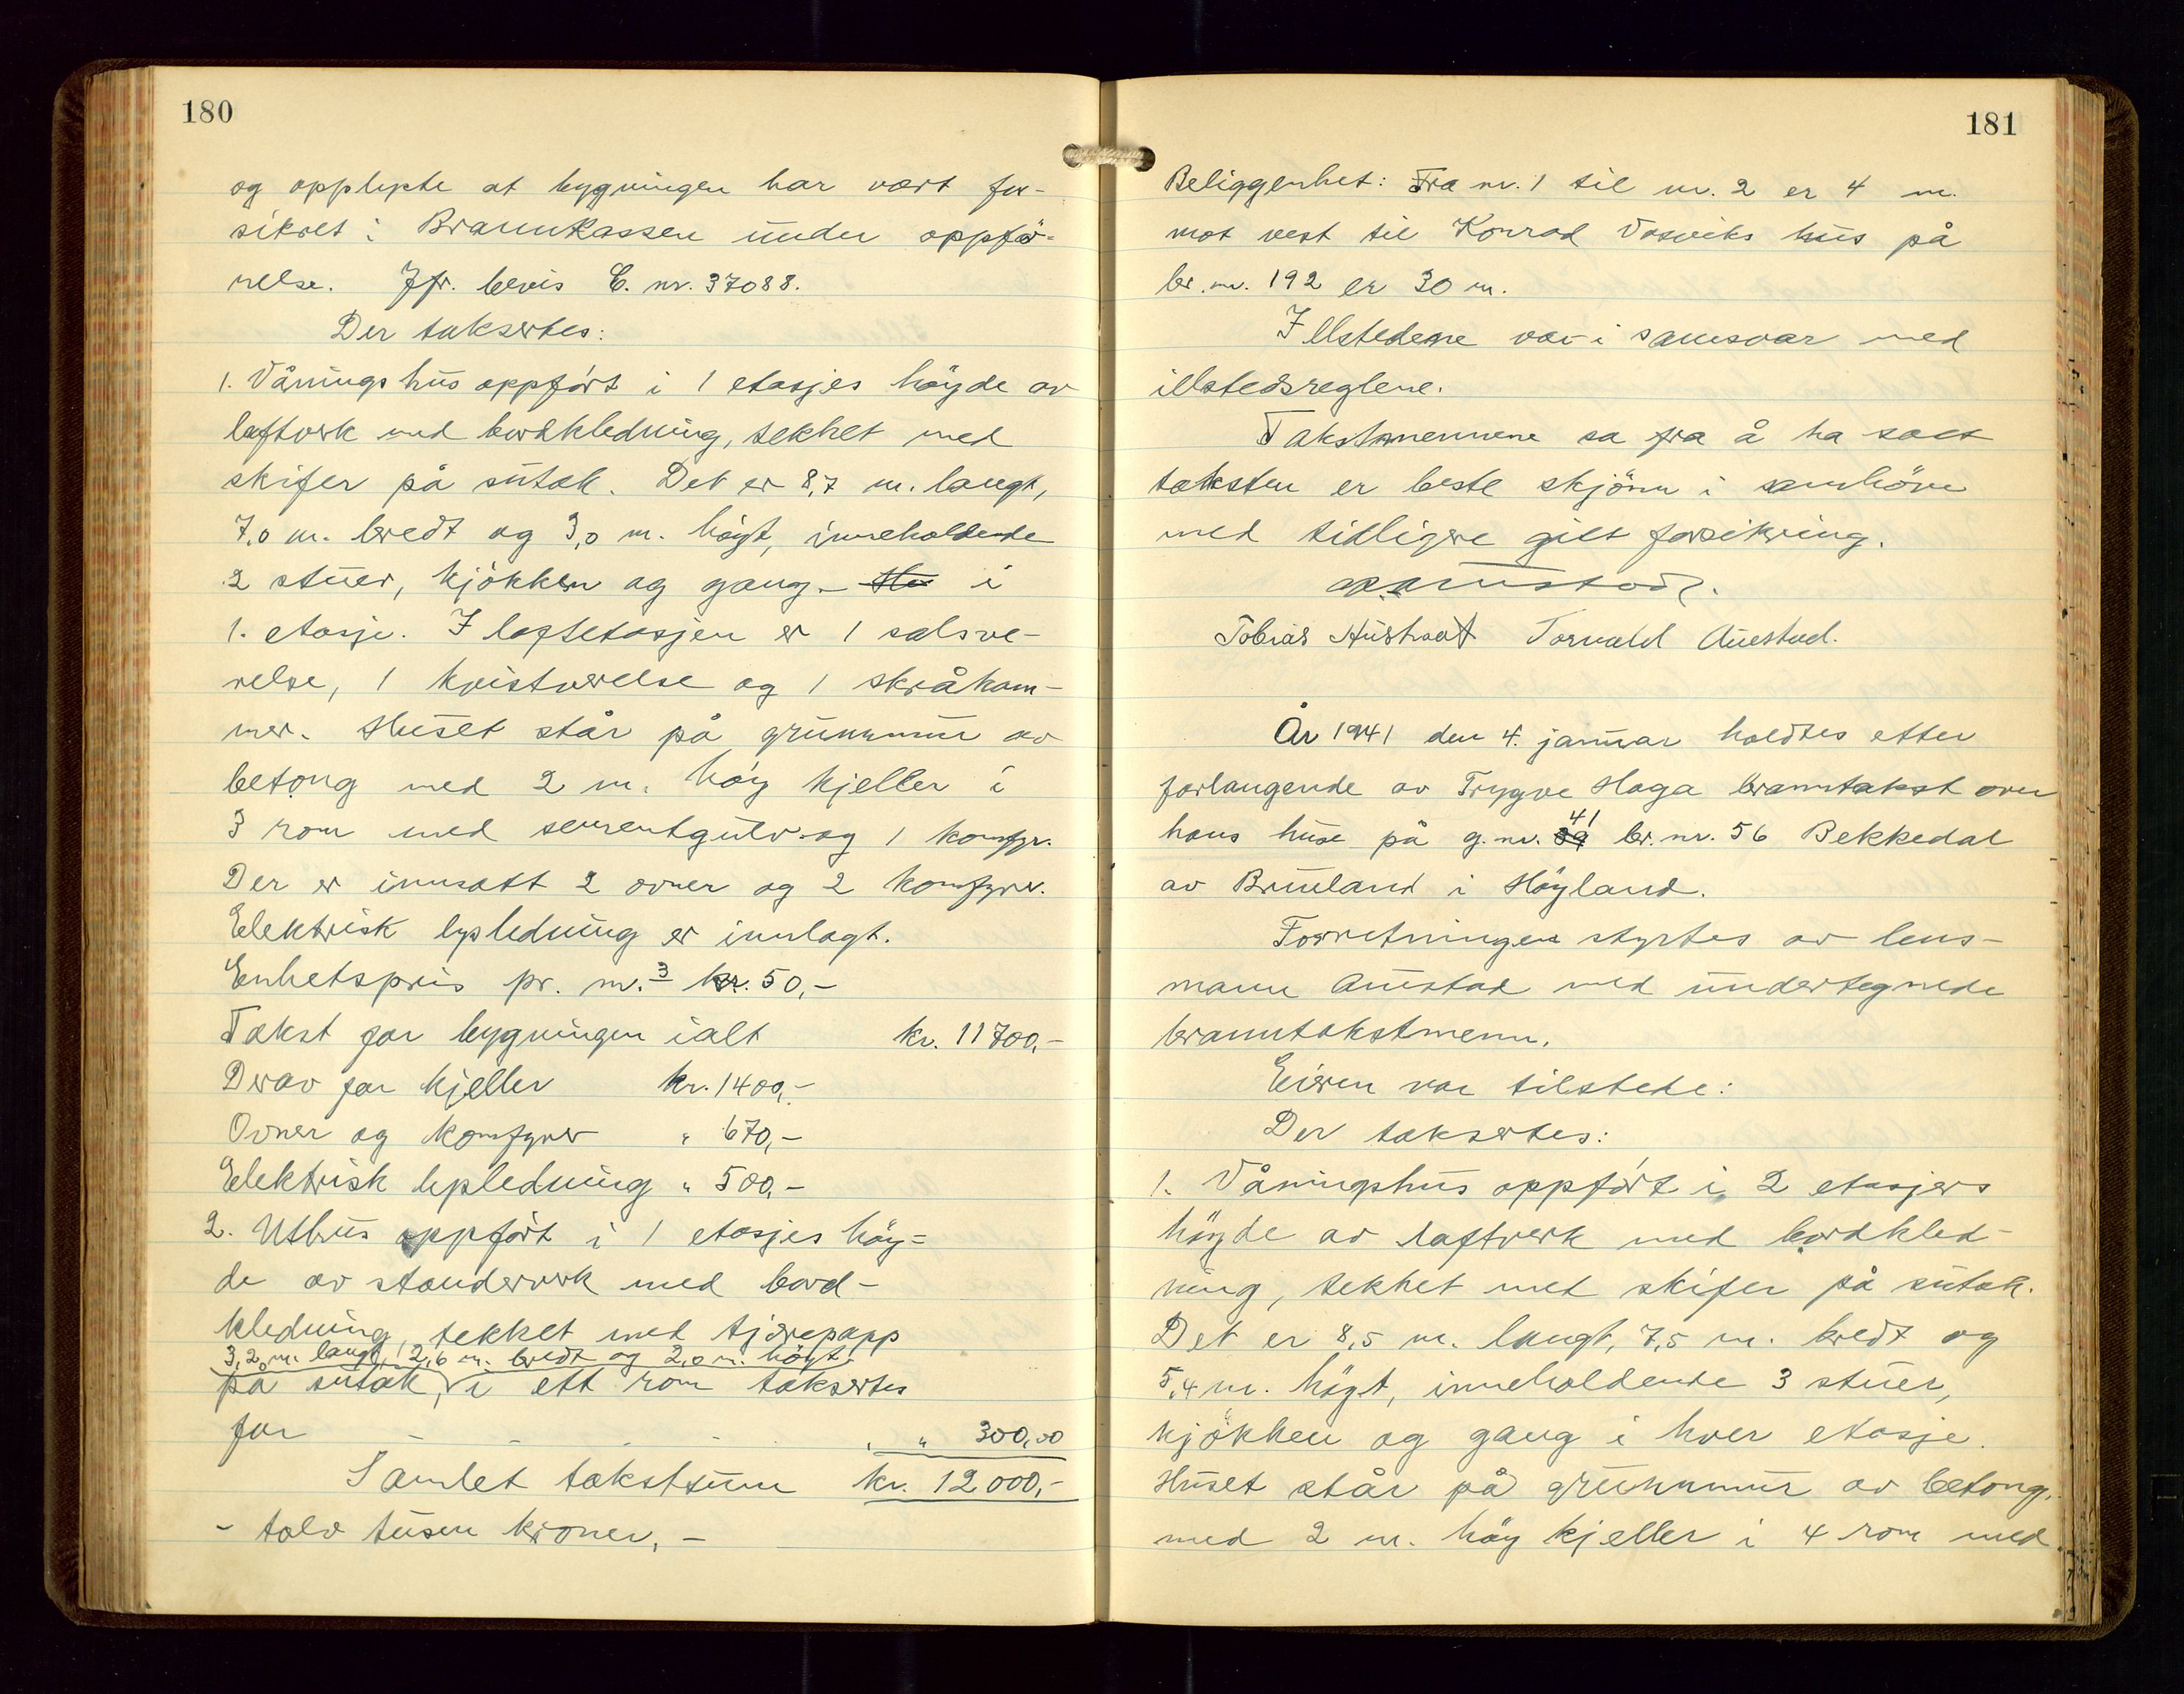 180
og opplyste at bygningen har vært for-
sikret i Brannkassen under oppfö-
relse. Jfr. bevis C. nr. 37088.
Der taksertes:
1. Våningshus oppfört i 1 etasjes höyde av
laftverk med bordkledning, tekket med
skifer på sutak. Det er 8,7 m. langt,
7,0 m. bredt og 3,0 m. höyt, inneholdende
2 stuer, kjökken og gang. i
1. etasje. I loftetasjen er 1 salsve-
relse, 1 kvistverelse og 1 skråkam-
mer. Huset står på grunnmur av
betong med 2 m. höy kjeller i
3 rom med sementgulv og 1 komfyr.
Der er innsatt 2 ovner og 2 komfyrer.
Elektrisk lysledning er innlagt.
Enhetspris pr. m.³ kr. 50,-
Takst for bygningen ialt kr. 11700,-
Derav for kjeller kr. 1400,-
Ovner og komfyrer " 670,-
Elektrisk lysledning " 500,-
2. Uthus oppfört i 1 etasjes höy-
de av standerverk med bord-
kledning, tekket med tjærepapp
3,2 m. langt, 2,6 m. bredt og 2,0 m. höyt.
på sutak, i ett rom taksertes
for " 300,00
Samlet takstsum kr. 12000,-
- tolv tusen kroner, -
181
Beliggenhet: Fra nr. 1 til nr. 2 er 4 m.
mot vest til Konrad Vasviks hus på
br. nr. 192 er 30 m.
Illstedene var i samsvar med
illstedsreglene.
Takstmennene sa fra å ha satt
taksten er beste skjönn i samhöve
med tidligere gitt forsikring.
Tobias Austraat Torvald Auestad.
År 1941 den 4. januar holdtes etter
forlangende av Trygve Haga branntakst over
hans huse på g. nr. 39 41 br. nr. 56 Bekkedal
av Brueland i Höyland.
Forretningen styrtes av lens-
mann Auestad med undertegnede
branntakstmenn.
Eieren var tilstede:
Der taksertes:
1. Våningshus oppfört i 2 etasjers
höyde av laftverk med bordkled-
ning, tekket med skifer på sutak.
Det er 8,5 m. langt, 7,5 m. bredt og
5,4 m. höyt, inneholdende 3 stuer,
kjökken og gang i hver etasje.
Huset står på grunnmur av betong,
med 2 m. höy kjeller i 4 rom med